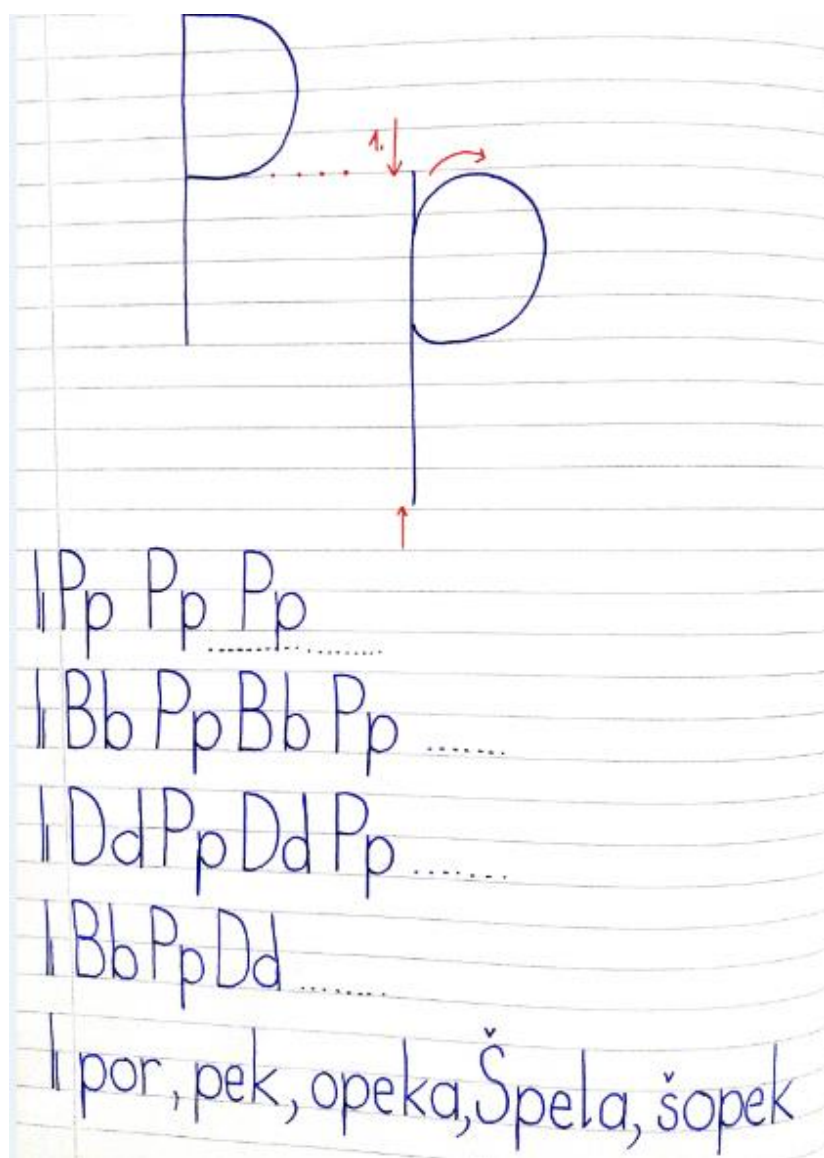 P
1.
p
Pp Pp Pp
Bb Pp Bb Pp
Dd Pp Dd Pp
Bb Pp Dd
por, pek, opeka, Špela, šopek